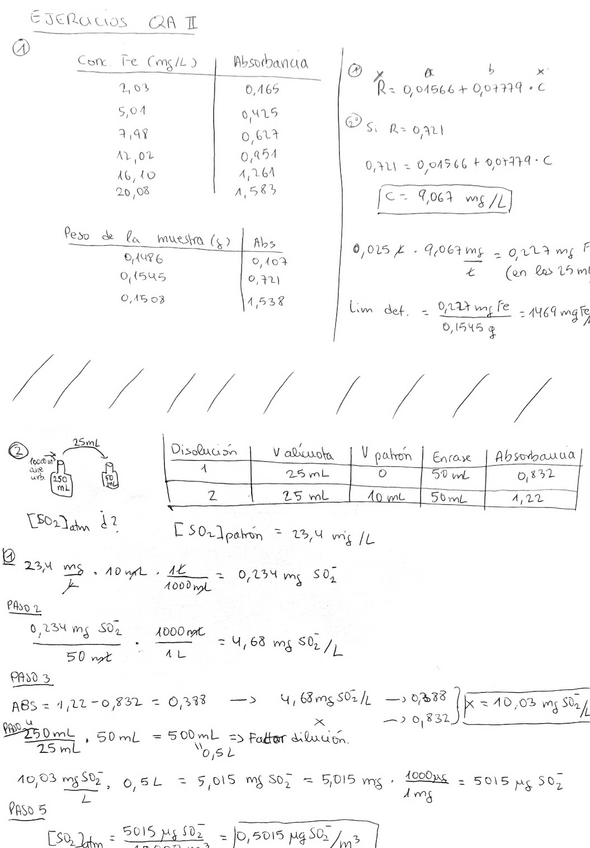 EJERCICIOS QA II
①
Conc Fe (mg/L) Absorbancia
2,03 0,165
5,01 0,425
7,98 0,627
12,02 0,951
16,10 1,261
20,08 1,583
Peso de la muestra (g) Abs
0,1486 0,107
0,1545 0,721
0,1508 1,538
a b x
R = 0,01566 + 0,07779 · C
Si R = 0,721
0,721 = 0,01566 + 0,07779 · C
C = 9,067 mg/L
0,025 L · 9,067 mg/L = 0,227 mg F
(en los 25 ml
Lim det. = 0,227 mg Fe / 0,1545 g = 1469 mg Fe/
②
25mL
250 mL
[SO2]atm ¿?
Disolución V alícuota V patrón Enrase Absorbancia
1 25 mL 0 50 mL 0,832
2 25 mL 10 mL 50 mL 1,22
[SO2]patrón = 23,4 mg/L
① 23,4 mg/L · 10 mL · 1L/1000mL = 0,234 mg SO2⁻
PASO 2
0,234 mg SO2⁻ / 50 mL · 1000 mL / 1 L = 4,68 mg SO2⁻/L
PASO 3
ABS = 1,22 - 0,832 = 0,388 → 4,68 mg SO2⁻/L → 0,388
x → 0,832
x = 10,03 mg SO2⁻/L
PASO 4
250mL/25 mL · 50 mL = 500 mL => Factor dilución.
0,5 L
10,03 mg SO2⁻/L · 0,5 L = 5,015 mg SO2⁻ = 5,015 mg · 1000 µg/1 mg = 5015 µg SO2⁻
PASO 5
[SO2]atm = 5015 µg SO2⁻ = 0,5015 µg SO2⁻/m³